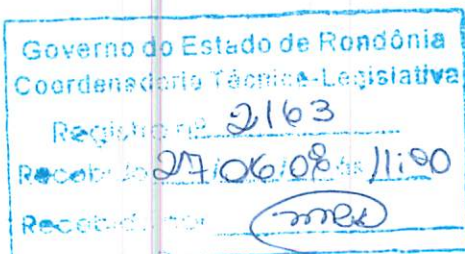 Governo do Estado de Rondônia
Coordenadoria Técnica-Legislativa
Registro nº 2163
Recebido 27/06/08 às 11:00
Recebido por